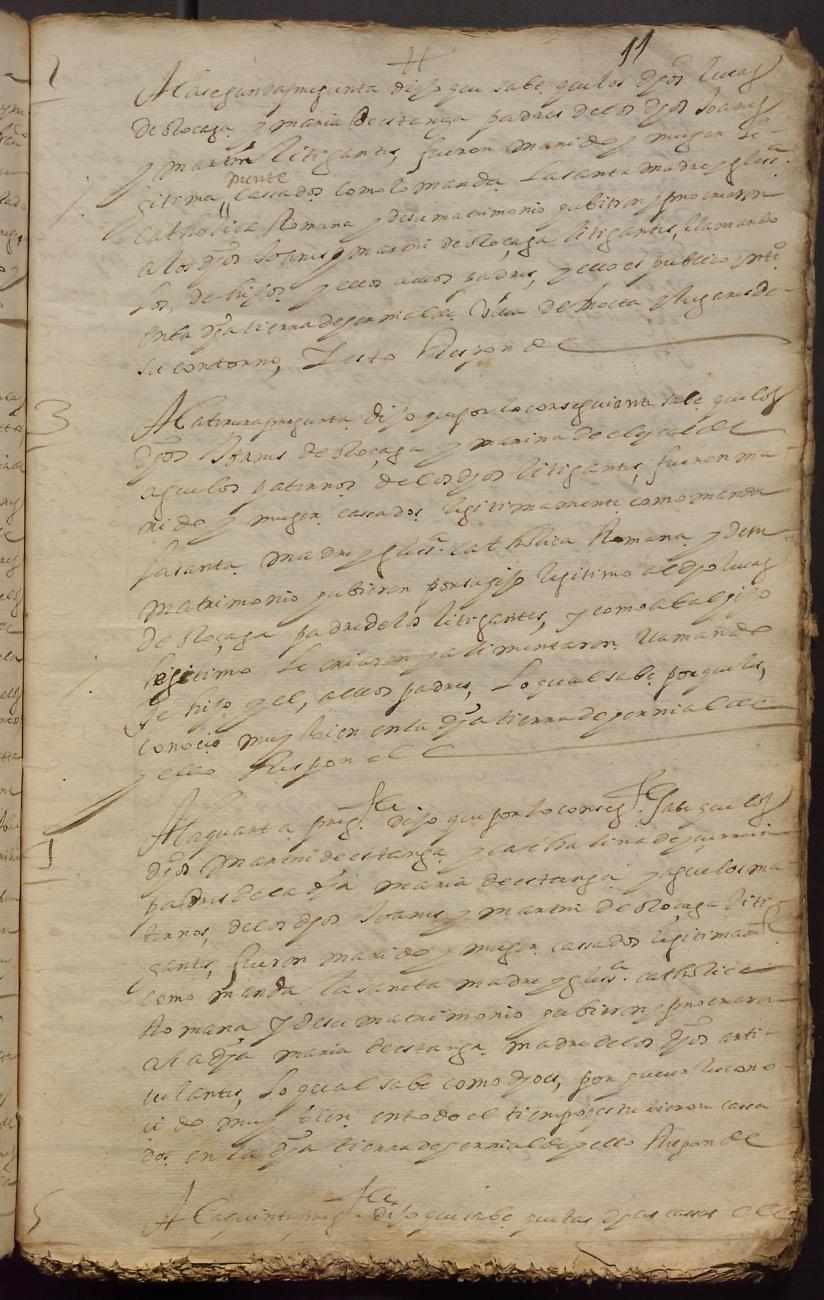 11
2
A la segunda pregunta dijo que sabe que los dhos lucas
de oloçaga y maria de estanga padres de los dhos Joanes
y martin litigantes, fueron marido y muger le-
gitimamente cassados como lo manda la santa madre yglesia
catholica Romana y de su matrimonio hubieron y procrearon
a los dhos Joanes y martin de oloçaga litigantes, llamando
los de hijos y ellos a ellos padres, y ello es publico y notorio
en la dha tierra de y lugares de
su contorno, y esto Responde
3
A la tercera pregunta dijo que por lo consiguiente sabe que los
dhos Joanes de oloçaga y marina de elycalde
aguelos paternos de los dhos litigantes, fueron ma-
rido y muger cassados legitimamente como manda
la santa madre yglesia catholica Romana y de su
matrimonio hubieron por su hijo legitimo al dho lucas
de oloçaga padre de los litigantes, y como a tal hijo
legitimo le criaron y alimentaron llamando
le hijo y el, a ellos padres, lo qual sabe porque los,
conocio muy bien en la dha tierra de
y ello Responde
A la quarta pregta dijo que por lo consigte sabe que los
dhos martin de estanga y cathalina de
padres de la dha maria de estanga y aguelos ma-
ternos, de los dhos Joanes y martin de oloçaga liti-
gantes, fueron marido y muger cassados legitimamte
como manda la sancta madre yglesia catholica
Romana y de su matrimonio hubieron y procrearon
a la dha maria de estanga madre de los dhos arti-
culantes, lo qual sabe como dho es, porque los cono-
cio muy bien en todo el tiempo que estuvieron cassa
dos en la dha tierra de y ello Responde
5
A la quinta pregta dijo que sabe que las dhas cassas de